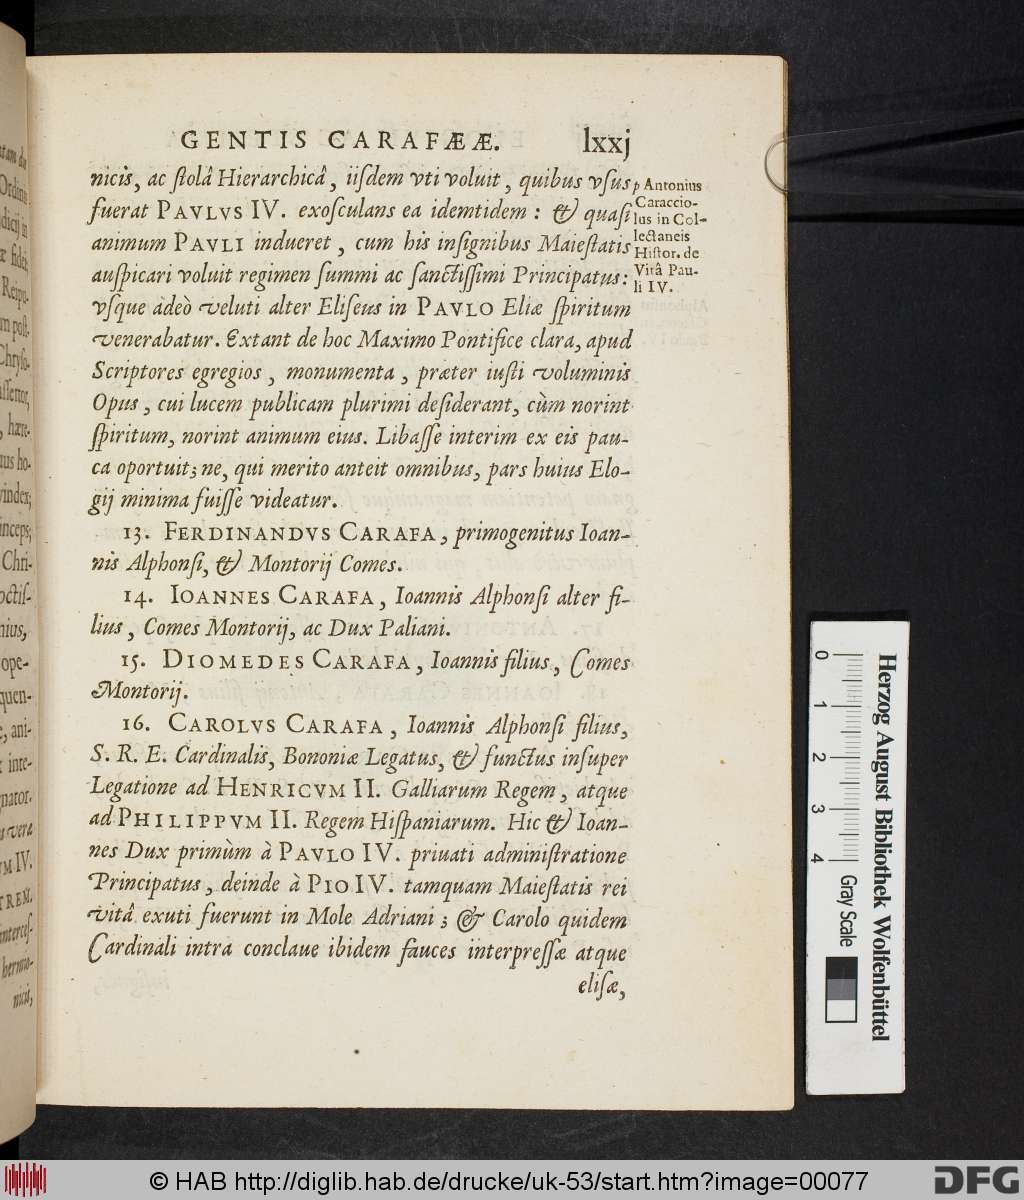 GENTIS CARAFÆÆ. lxxj
nicis, ac ſtolâ Hierarchicâ, iiſdem vti voluit, quibus vſus
fuerat PAVLVS IV. exoſculans ea idemtidem: & quaſi
animum PAVLI indueret, cum his inſignibus Maieſtatis
auſpicari voluit regimen ſummi ac ſanctiſſimi Principatus:
vſque adeò veluti alter Eliſeus in PAVLO Eliæ ſpiritum
venerabatur. Extant de hoc Maximo Pontifice clara, apud
Scriptores egregios, monumenta, præter iuſti voluminis
Opus, cui lucem publicam plurimi deſiderant, cùm norint
ſpiritum, norint animum eius. Libaſſe interim ex eis pau-
ca oportuit; ne, qui merito anteit omnibus, pars huius Elo-
gij minima fuiſſe videatur.
p Antonius
Caraccio-
lus in Col-
lectaneis
Hiſtor. de
Vitâ Pau-
li IV.
13. FERDINANDVS CARAFA, primogenitus Ioan-
nis Alphonſi, & Montorij Comes.
14. IOANNES CARAFA, Ioannis Alphonſi alter fi-
lius, Comes Montorij, ac Dux Paliani.
15. DIOMEDES CARAFA, Ioannis filius, Comes
Montorij.
16. CAROLVS CARAFA, Ioannis Alphonſi filius,
S. R. E. Cardinalis, Bononiæ Legatus, & functus inſuper
Legatione ad HENRICVM II. Galliarum Regem, atque
ad PHILIPPVM II. Regem Hiſpaniarum. Hic & Ioan-
nes Dux primùm à PAVLO IV. priuati adminiſtratione
Principatus, deinde à PIO IV. tamquam Maieſtatis rei
vitâ exuti fuerunt in Mole Adriani; & Carolo quidem
Cardinali intra conclaue ibidem fauces interpreſſæ atque
eliſæ,
0 1 2 3 4
Gray Scale
Herzog August Bibliothek Wolfenbüttel
© HAB http://diglib.hab.de/drucke/uk-53/start.htm?image=00077
DFG